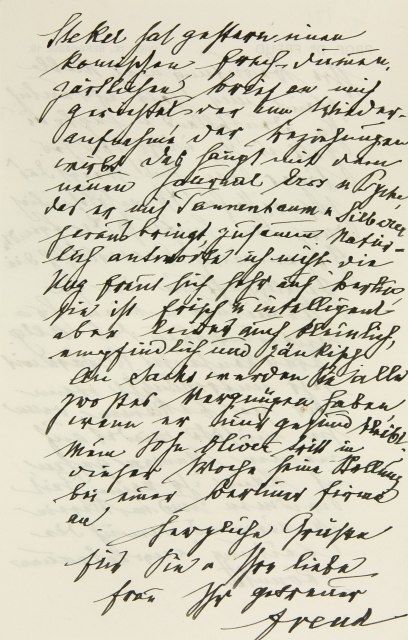 Stekel hat gestern einen
komischen frech-dummen,
zärtlichen Brief an mich
gerichtet der um Wieder-
aufnahme der Beziehungen
wirbt. Das hängt mit dem
neuen Journal Eros u Psyche
das er mit Tannenbaum u Silberer
herausbringt, zusammen. Natür-
lich antworte ich nicht. Die
Hug freut sich sehr auf Berlin
Sie ist frisch u intelligent
aber leider auch kleinlich,
empfindlich und zänkisch
An Sachs werden Sie alle
großes Vergnügen haben
wenn er nur gesund bleibt.
Mein Sohn Oliver tritt in
dieser Woche seine Stellung
bei einer Berliner Firma
an.
Herzliche Grüße
für Sie u Ihre liebe
Frau Ihr getreuer
Freud